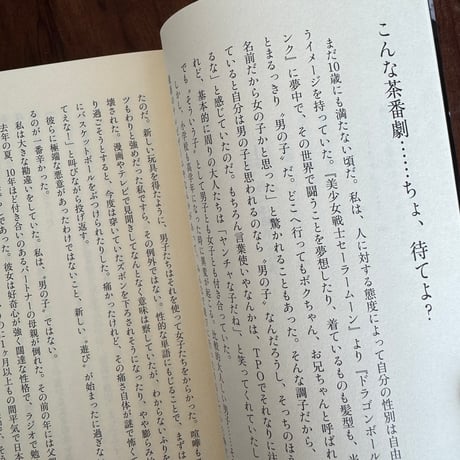 こんな茶番劇……ちょ、待てよ？
まだ10歳にも満たない頃だ。私は、人に対する態度によって自分の性別は自由
うイメージを持っていた。『美少女戦士セーラームーン』より『ドラゴンボール
ンク』に夢中で、その世界で闘うことを夢想したり、着ているものも髪型も、
とまるっきり〝男の子〟だ。どこへ行ってもボクちゃん、お兄ちゃんと呼ばれ
名前だから女の子かと思った」と驚かれることもあった。そんな調子だから、
ていると自分は男の子と思われるのなら、〝男の子〟なんだろうし、そっちのほ
るな」と感じていたのだ。もちろん言葉使いなんかは、TPOでそれなりに
れど、基本的に周りの大人たちは「ヤンチャな子だね」と笑ってくれていたし
でも〝そういう子〟として男子とも女子とも付き合っていた。
しかし、
たのだ。新しい玩具を得たように、男子たちはそれを使って女子たちをからかった。喧嘩も
ツもわりと強めだった私ですら、その例外ではない。性的な単語にもじることで、まずは
壊された。漫画やテレビで見聞きしてなんとなく意味は察していたが、わからないふりを
り過ごそうとすると、今度は穿いていたズボンを下ろされそうになったり、やや膨らみ
にバスケットボールをぶつけられたりした。痛かったけれど、その痛さ自体が謎で怖くて
てぇなー！」と叫びながら投げ返す。
彼らに極端な悪意があったわけではないこと、新しい〝遊び〟が始まったに過ぎな
るのが一番辛かった。
私は大きな勘違いをしていた。私は、〝男の子〟ではない。
去年の夏、10年ほど付き合いのあるパートナーの母親が倒れた。その前の年には父
であった。彼女は好奇心が強く闊達な性格で、ラジオで勉
1ヶ月以上もの間平気で日本